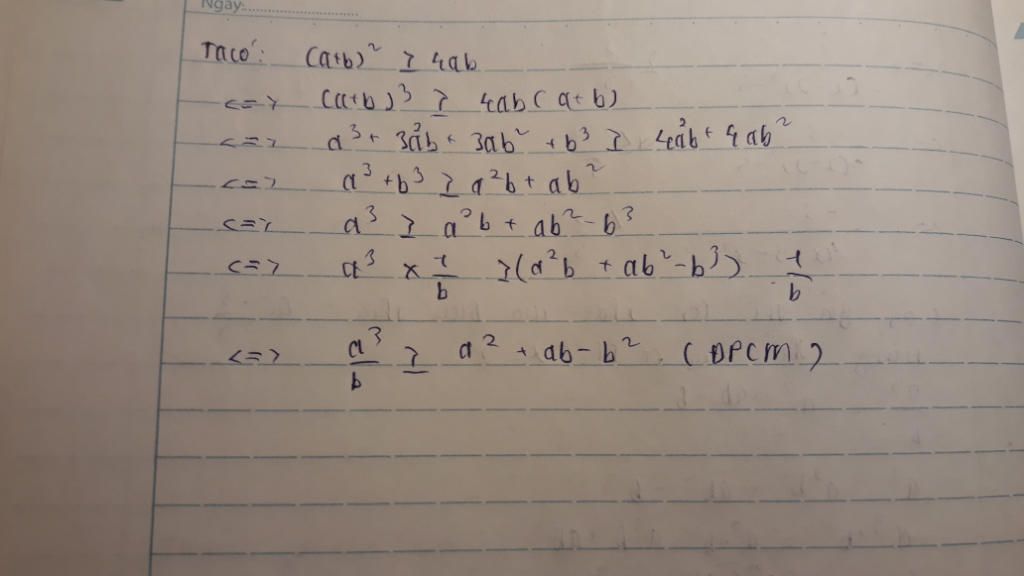 Ngày:
Ta có: (a+b)² ≥ 4ab
<=> (a+b)³ ≥ 4ab(a+b)
<=> a³ + 3a²b + 3ab² + b³ ≥ 4a²b + 4ab²
<=> a³ + b³ ≥ a²b + ab²
<=> a³ ≥ a²b + ab² - b³
<=> a³ × 1/b ≥ (a²b + ab² - b³) 1/b
<=> a³/b ≥ a² + ab - b². (ĐPCM)